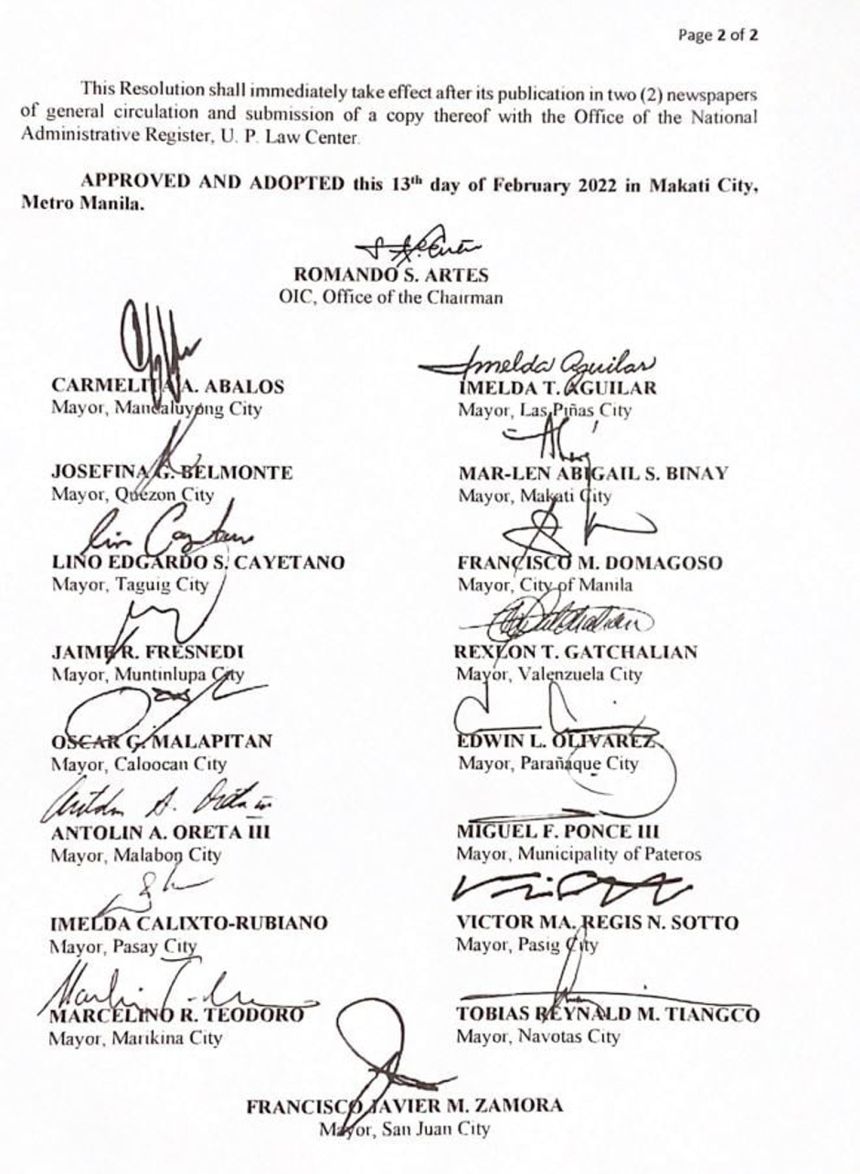 Page 2 of 2
This Resolution shall immediately take effect after its publication in two (2) newspapers
of general circulation and submission of a copy thereof with the Office of the National
Administrative Register, U. P. Law Center.
APPROVED AND ADOPTED this 13th day of February 2022 in Makati City,
Metro Manila.
ROMANDO S. ARTES
OIC, Office of the Chairman
CARMELITA A. ABALOS
Mayor, Mandaluyong City
Imelda Aguilar
IMELDA T. AGUILAR
Mayor, Las Piñas City
JOSEFINA G. BELMONTE
Mayor, Quezon City
MAR-LEN ABIGAIL S. BINAY
Mayor, Makati City
LINO EDGARDO S. CAYETANO
Mayor, Taguig City
FRANCISCO M. DOMAGOSO
Mayor, City of Manila
JAIME R. FRESNEDI
Mayor, Muntinlupa City
REXLON T. GATCHALIAN
Mayor, Valenzuela City
OSCAR G. MALAPITAN
Mayor, Caloocan City
EDWIN L. OLIVAREZ
Mayor, Parañaque City
ANTOLIN A. ORETA III
Mayor, Malabon City
MIGUEL F. PONCE III
Mayor, Municipality of Pateros
IMELDA CALIXTO-RUBIANO
Mayor, Pasay City
VICTOR MA. REGIS N. SOTTO
Mayor, Pasig City
MARCELINO R. TEODORO
Mayor, Marikina City
TOBIAS REYNALD M. TIANGCO
Mayor, Navotas City
FRANCISCO JAVIER M. ZAMORA
Mayor, San Juan City